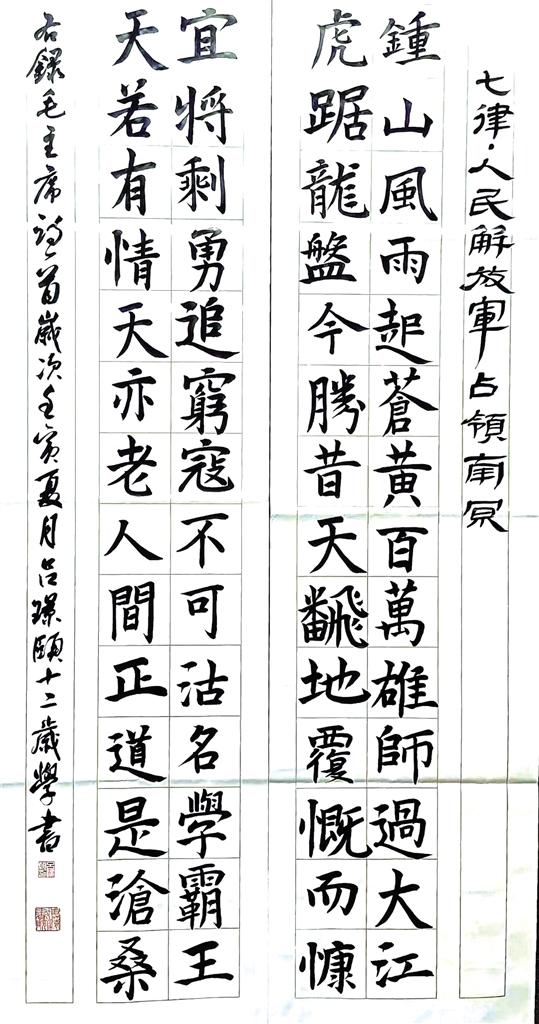 七律·人民解放軍占領南京
鍾山風雨起蒼黃百萬雄師過大江
虎踞龍盤今勝昔天飜地覆慨而慷
宜將剩勇追窮寇不可沽名學霸王
天若有情天亦老人間正道是滄桑
右錄毛主席詩一首歲次壬寅夏月吕璟頤十二歲學書